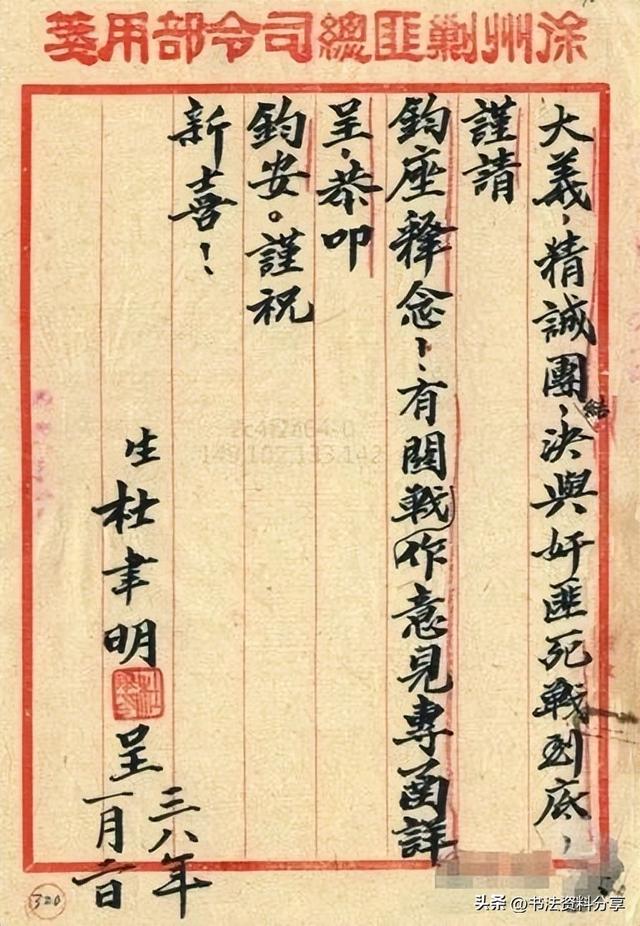 徐州剿匪總司令部用箋
大義，精誠團結，決與奸匪死戰到底，
謹請
鈞座釋念！有關戰作意見專函詳
呈，恭叩
鈞安。謹祝
新喜！
生杜聿明呈
三八年
一月二日
320
头条 @书法资料分享